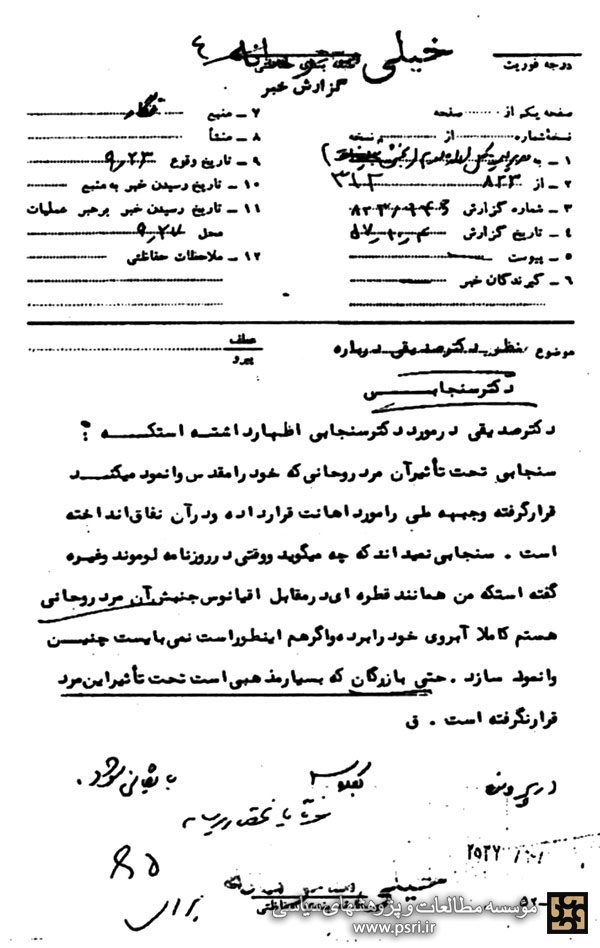 خیلی محرمانه
گزارش خبر
درجه فوریت
صفحه یک از ........ صفحه
نسخه شماره ........ از ........ نسخه
۱ – به
۲ – از ۸۲۲ ۳۱۲
۳ – شماره گزارش
۴ – تاریخ گزارش ۵۷-۱۰-۴
۵ – پیوست
۶ – گیرندگان خبر
۷ – منبع
۸ – منشأ
۹ – تاریخ وقوع ۹٫۲۳
۱۰ – تاریخ رسیدن خبر به منبع
۱۱ – تاریخ رسیدن خبر برهبر عملیات
محل ۹٫۲۷
۱۲ – ملاحظات حفاظتی
موضوع نظر دکتر صدیقی درباره
دکتر سنجابی
عطف
پیرو
دکتر صدیقی در مورد دکتر سنجابی اظهار داشته است که :
سنجابی تحت تأثیر آن مرد روحانی که خود را مقدس وانمود میکند
قرار گرفته و جبهه ملی را مورد اهانت قرار داده و در آن نفاق انداخته
است . سنجابی نمیداند که چه میگوید و وقتی در روزنامه لوموند وغیره
گفته استکه من همانند قطره ای در مقابل اقیانوس جنبش آن مرد روحانی
هستم کاملا آبروی خود را برده و اگر هم اینطور است نمی بایست چنین
وانمود سازد . حتی بازرگان که بسیار مذهبی است تحت تأثیر این مرد
قرار نگرفته است . ق
در پرونده
بایگانی شود .
۲۵۳۷
۸۵
خیلی محرمانه
مؤسسه مطالعات و پژوهشهای سیاسی
www.psri.ir